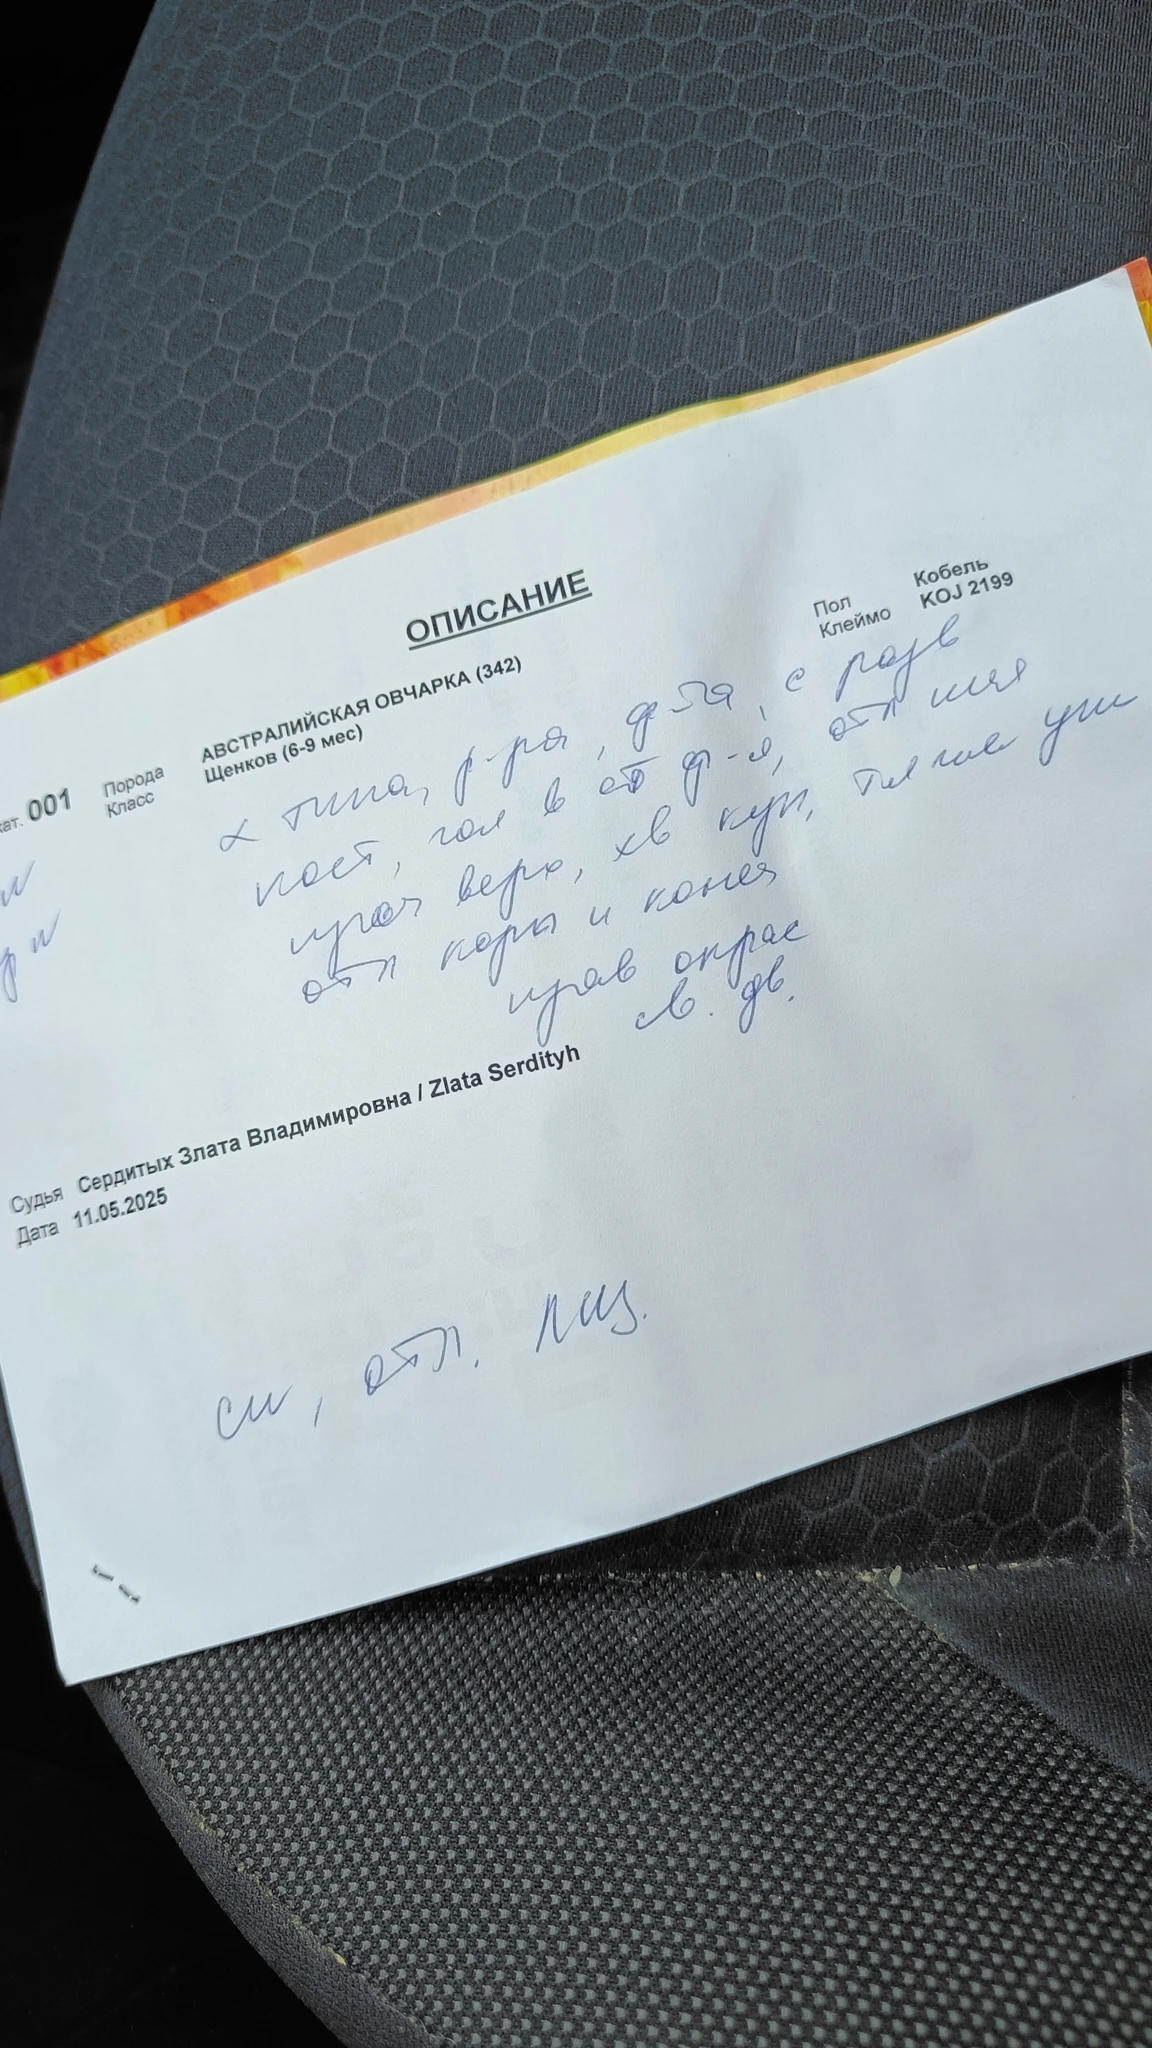 ОПИСАНИЕ
кат. 001 Порода АВСТРАЛИЙСКАЯ ОВЧАРКА (342) Пол Кобель
Класс Щенков (6-9 мес) Клеймо KOJ 2199
х типа, р-ра, ф-та, с разв
пост, гол в ст ф-я, отл шея
прав верх, хв куп, тяжел уши
отл корп и конеч
прав окрас
св. дв.
Судья Сердитых Злата Владимировна / Zlata Serdityh
Дата 11.05.2025
отл. ЛЩ.